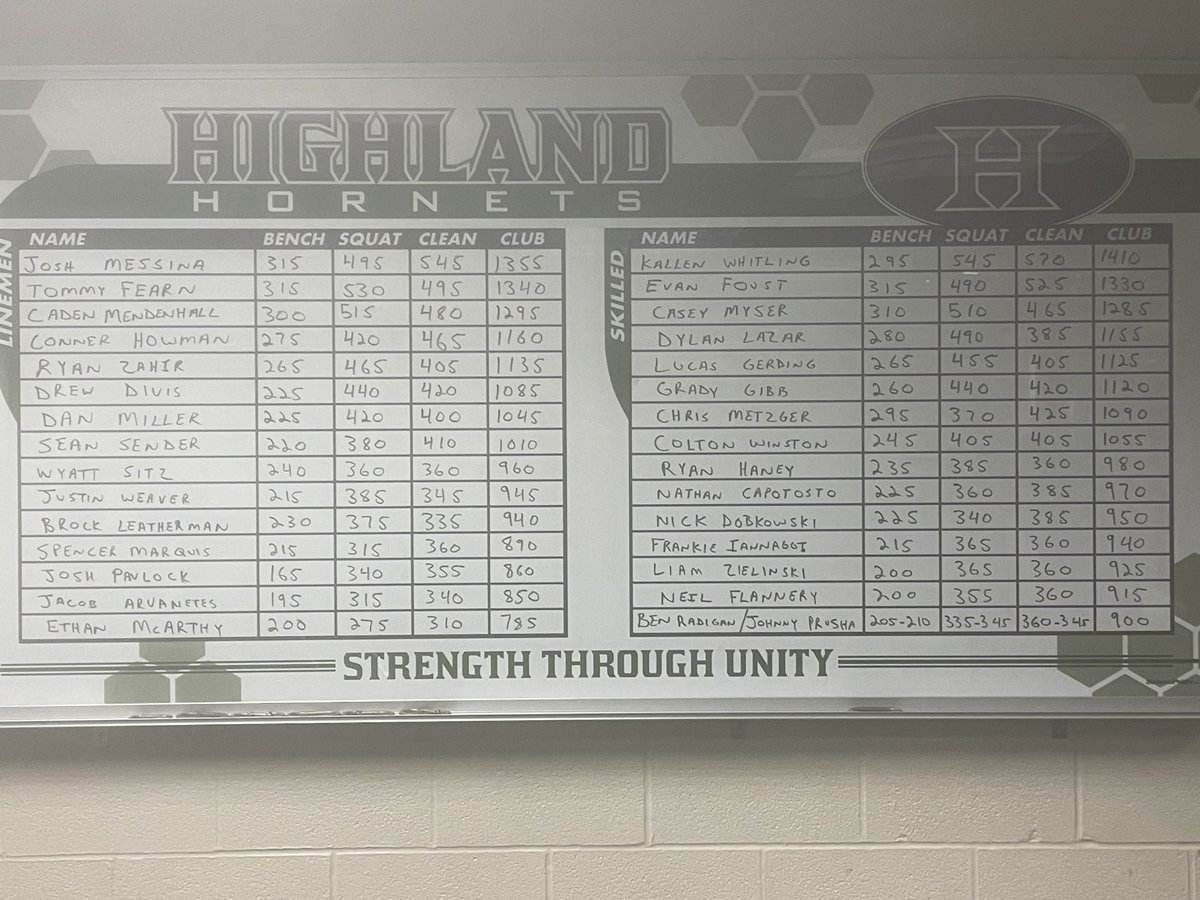 HIGHLAND
HORNETS
H
LINEMEN
NAME BENCH SQUAT CLEAN CLUB
JOSH MESSINA 315 495 545 1355
TOMMY FEARN 315 530 495 1340
CADEN MENDENHALL 300 515 480 1295
CONNER HOWMAN 275 420 465 1160
RYAN ZAHIR 265 465 405 1135
DREW DIVIS 225 440 420 1085
DAN MILLER 225 420 400 1045
SEAN SENDER 220 380 410 1010
WYATT SITZ 240 360 360 960
JUSTIN WEAVER 215 385 345 945
BROCK LEATHERMAN 230 375 335 940
SPENCER MARQUIS 215 315 360 890
JOSH PAVLOCK 165 340 355 860
JACOB ARVANETES 195 315 340 850
ETHAN McARTHY 200 275 310 785
SKILLED
NAME BENCH SQUAT CLEAN CLUB
KALLEN WHITLING 295 545 570 1410
EVAN FOUST 315 490 525 1330
CASEY MYSER 310 510 465 1285
DYLAN LAZAR 280 490 385 1155
LUCAS GERDING 265 455 405 1125
GRADY GIBB 260 440 420 1120
CHRIS METZGER 295 370 425 1090
COLTON WINSTON 245 405 405 1055
RYAN HANEY 235 385 360 980
NATHAN CAPOTOSTO 225 360 385 970
NICK DOBKOWSKI 225 340 385 950
FRANKIE 215 365 360 940
LIAM ZIELINSKI 200 365 360 925
NEIL FLANNERY 200 355 360 915
BEN RADIGAN/JOHNNY PRUSHA 205-210 335-345 360-345 900
STRENGTH THROUGH UNITY